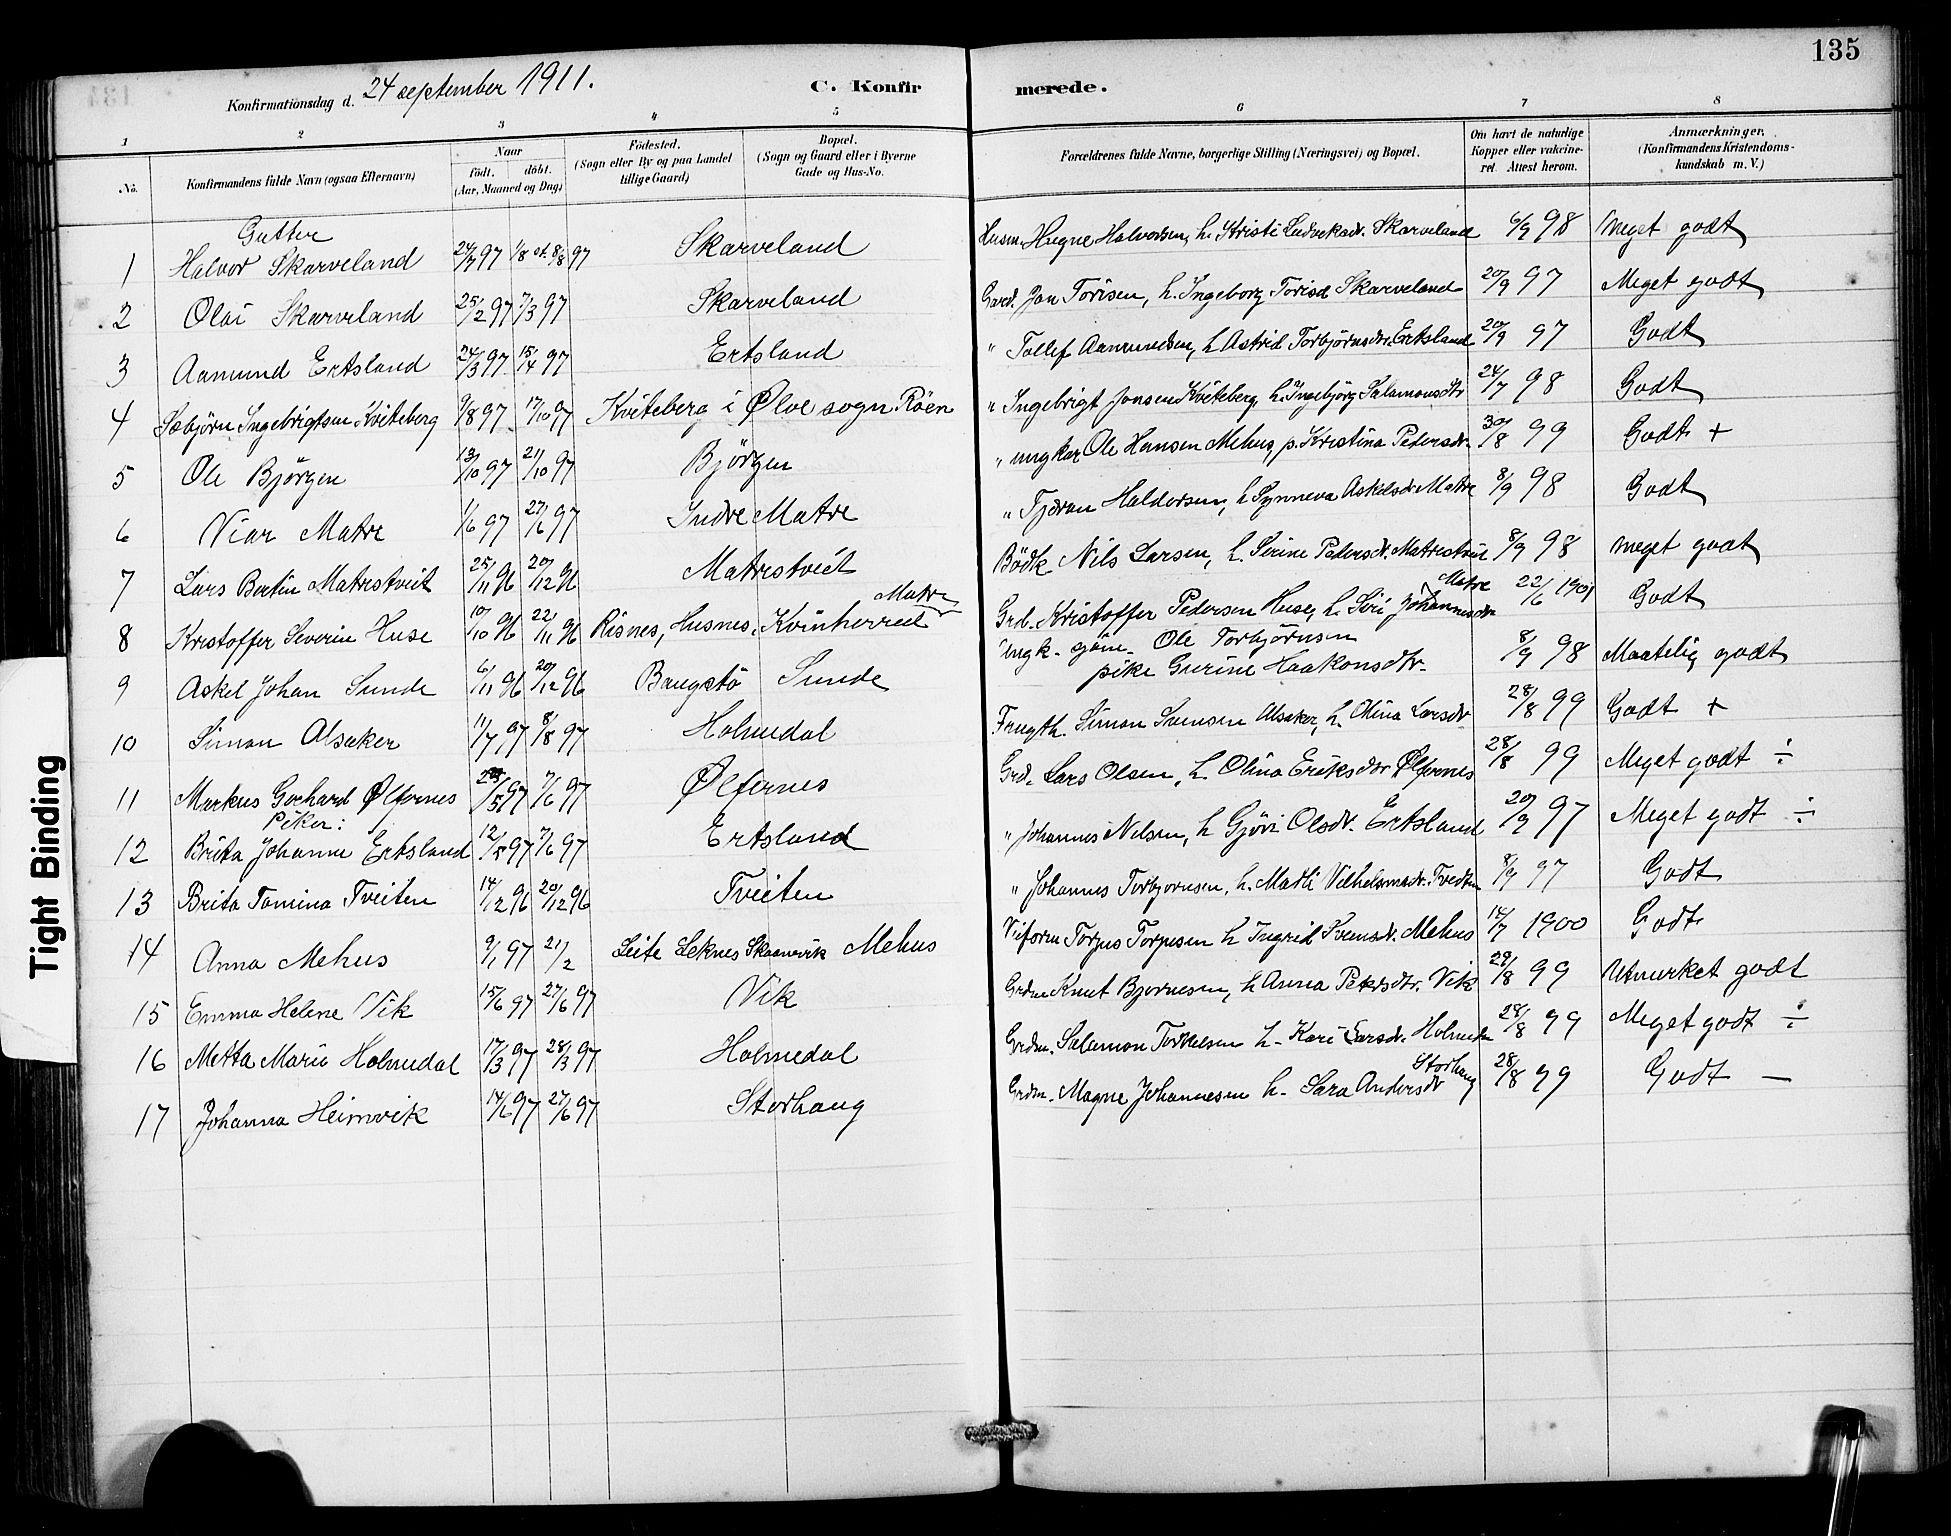 135
Konfirmationsdag d. 24 september 1911. C. Konfirmerede.
1 2 3 4 5 6 7 8
No. Konfirmandens fulde Navn (ogsaa Efternavn) Naar födt. döbt. (Aar, Maaned og Dag) Födested. (Sogn eller By og paa Landet tillige Gaard) Bopæl. (Sogn og Gaard eller i Byerne Gade og Hus-No. Forældrenes fulde Navne, borgerlige Stilling (Næringsvei) og Bopæl. Om havt de naturlige Kopper eller vakcineret. Attest herom. Anmærkninger. (Konfirmandens Kristendomskundskab m. V.)
Gutter
1 Halvor Skarveland 24/7 97 1/8 st. 8/8 97 Skarveland Husm. Magne Halvorsen, h. Kristi Ludveksdr. Skarveland 6/9 98 Meget godt
2 Olai Skarveland 25/2 97 7/3 97 Skarveland Gard. Jon Torisen, h. Ingeborg Torisd Skarveland 20/9 97 Meget godt
3 Aamund Ertsland 24/3 97 15/4 97 Ertsland " Tollef Aamundsen, h Astrid Torbjørnsdr. Ertsland 20/9 97 Godt
4 Sæbjörn Ingebrigtsen Kviteberg 9/8 97 17/10 97 Kviteberg i Ølve sogn. Röen " Ingebrigt Jonsen Kviteberg, h. Ingebjörg Salamonsdtr 24/7 98 Godt
5 Ole Björgen 13/10 97 21/10 97 Björgen " ungkar Ole Hansen Mehus, p. Kristina Pedersdr. 30/8 99 Godt +
6 Viar Matre 1/6 97 27/6 97 Indre Matre " Tjeran Haldorsen, h Synneva Askilsdr Matre 8/9 98 Godt
7 Lars Bertin Matrestveit 25/11 96 20/12 96 Matrestveit Bödk. Nils Larsen, h. Serine Pedersdr. Matrestveit 8/9 98 meget godt
8 Kristoffer Severin Huse 10/10 96 22/11 96 Risnes, Husnes, Kvinherred Matre Grdb. Kristoffer Pedersen Huse, h. Siri Johannesdr Matre 22/6 1901 Godt
9 Askel Johan Sunde 6/11 96 20/12 96 Baugstö Sunde Ungk. Ole Torbjørnsen
pike Gurine Haakonsdtr. 8/9 98 Maatelig godt
10 Simon Alsaker 11/7 97 8/8 97 Holmedal Simon Svensen Alsaker, h. Olina Larsdr 28/8 99 Godt +
11 Markus Gerhard Ølfernes /5 97 7/6 97 Ølfernes Grd. Lars Olsen, h. Olina Eriksdtr Ølfernes 28/8 99 Meget godt ÷
Piker:
12 Brita Johanne Ertsland 12/5 97 7/6 97 Ertsland " Johannes Nelsen, h Gjöri Olsdr. Ertsland 20/9 97 Meget godt ÷
13 Brita Tomina Tveiten 14/12 96 20/12 96 Tveiten " Johannes Torbjornsen, h. Matli Vilhelmsdr. Tvedten 8/9 97 Godt
14 Anna Mehus 9/1 97 21/2 Leite Leknes Skaanevik Mehus Torjus Torjusen h Ingrid Svensdr. Mehus 14/7 1900 Godt
15 Emma Helene Vik 15/6 97 27/6 97 Vik Grdm Knut Bjornesen, h Anna Petersdtr. Vik 29/8 99 Utmerket godt
16 Metta Marie Holmedal 17/3 97 28/3 97 Holmedal Grdm. Salamon Tortelsen h. Kari Larsdr. Holmedm 28/8 99 Meget godt ÷
17 Johanna Heimvik 14/6 97 27/6 97 Storhaug Grdm. Magne Johannesen h. Sara Andersdr Storhaug 28/8 99 Godt —
Tight Binding